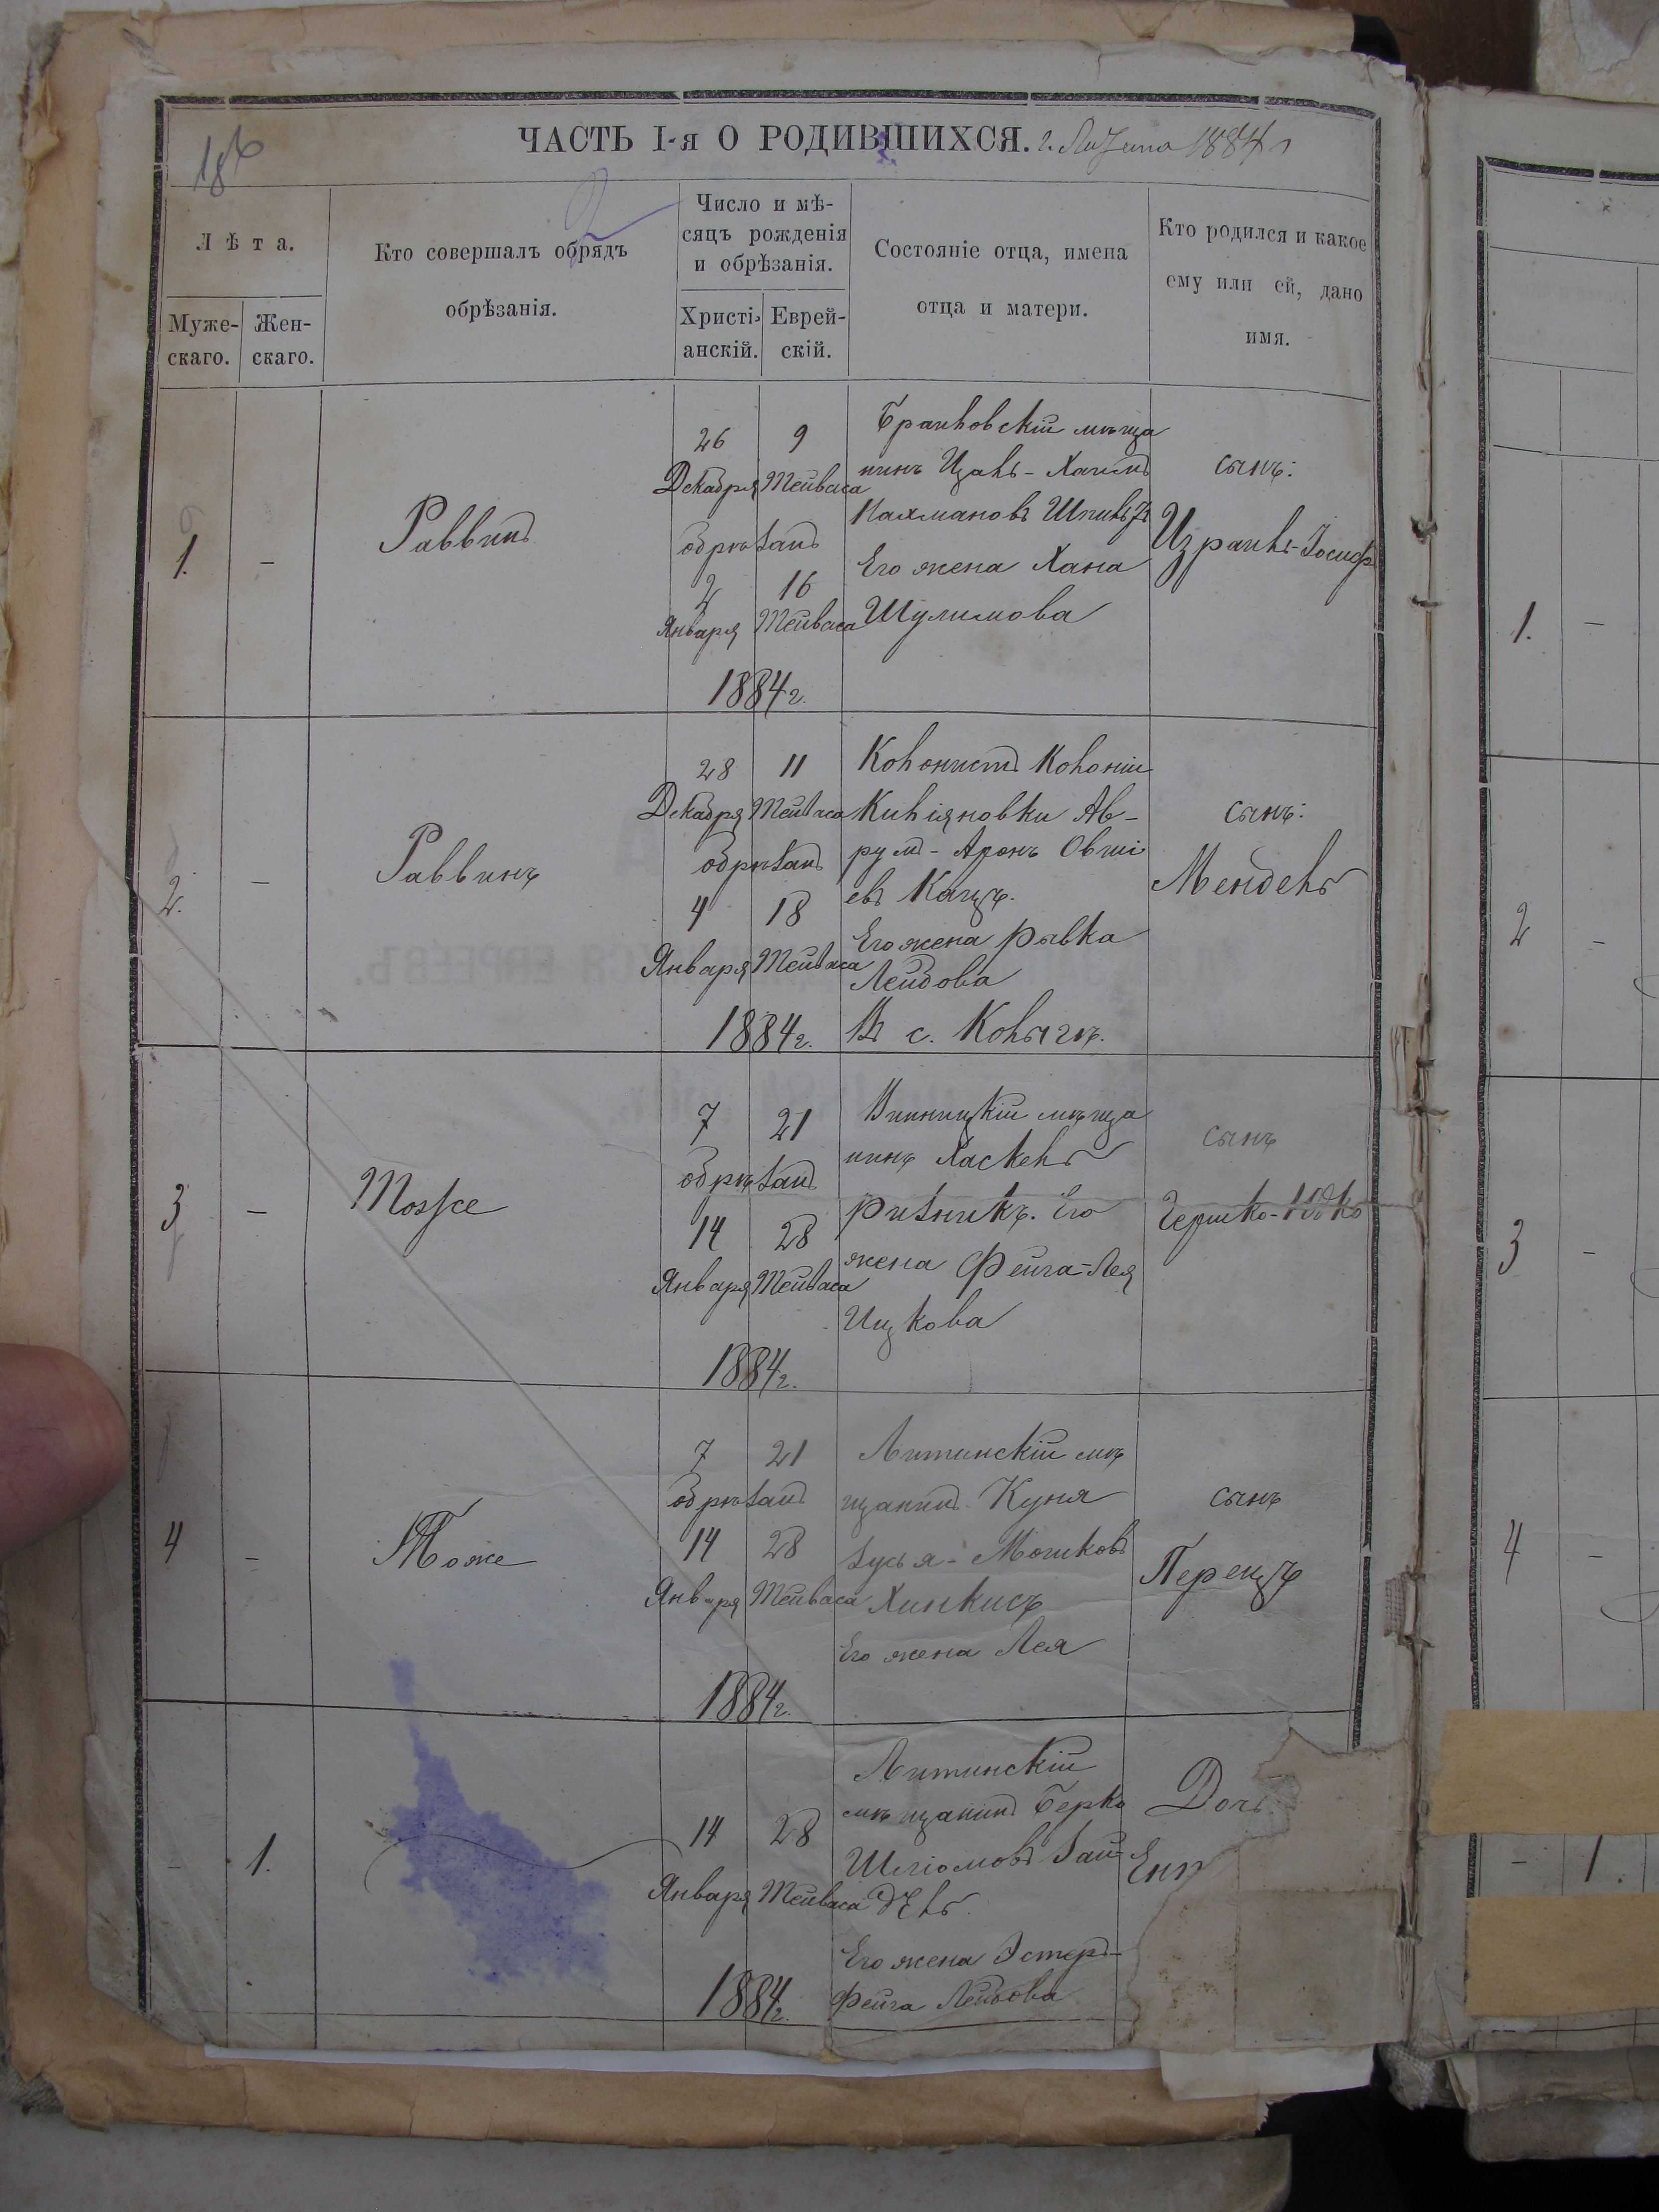 186
ЧАСТЬ I-я О РОДИВШИХСЯ. г. Литина 1884 г
2
Лѣта.
Муже-
скаго.
Жен-
скаго.
Кто совершалъ обрядъ
обрѣзанія.
Число и мѣ-
сяцъ рожденія
и обрѣзанія.
Христі-
анскій.
Еврей-
скій.
Состояніе отца, имена
отца и матери.
Кто родился и какое
ему или ей, дано
имя.
1.
-
Раввинъ
26 9
Декабря Тейваса
обрѣзанъ
2 16
Января Тейваса
1884 г.
Браиловскій мѣща
нинъ Хаимъ
Нахмановъ
Его жена Хана
Шулимова
сынъ:
Израиль-Іосифъ
2.
-
Раввинъ
28 11
Декабря Тейваса
обрѣзанъ
4 18
Января Тейваса
1884 г.
Колонистъ Колоніи
Килияновки Ав-
румъ-Аронъ Овши
евъ Кацъ.
Его жена Рывка
Лейбова
Въ с.
сынъ:
Мендель
3
-
Тоже
7 21
обрѣзанъ
14 28
Января Тейваса
1884 г.
Винницкій мѣща
нинъ Хаскель
Ризникъ. Его
жена Фейга-Лея
Ицкова
сынъ
Гершко-
4
-
Тоже
7 21
обрѣзанъ
14 28
Января Тейваса
1884 г.
Литинскій мѣ
щанинъ Куня
Зусья-Мошковъ
Хинкисъ
Его жена Лея
сынъ
Перецъ
-
1.
14 28
Января Тейваса
1884 г.
Литинскій
мѣщанинъ Берко
Шліомовъ Зай-
дель.
Его жена Эстеръ-
Фейга Лейбова
Дочь
1.
-
2
-
3
-
4
-
-
1.